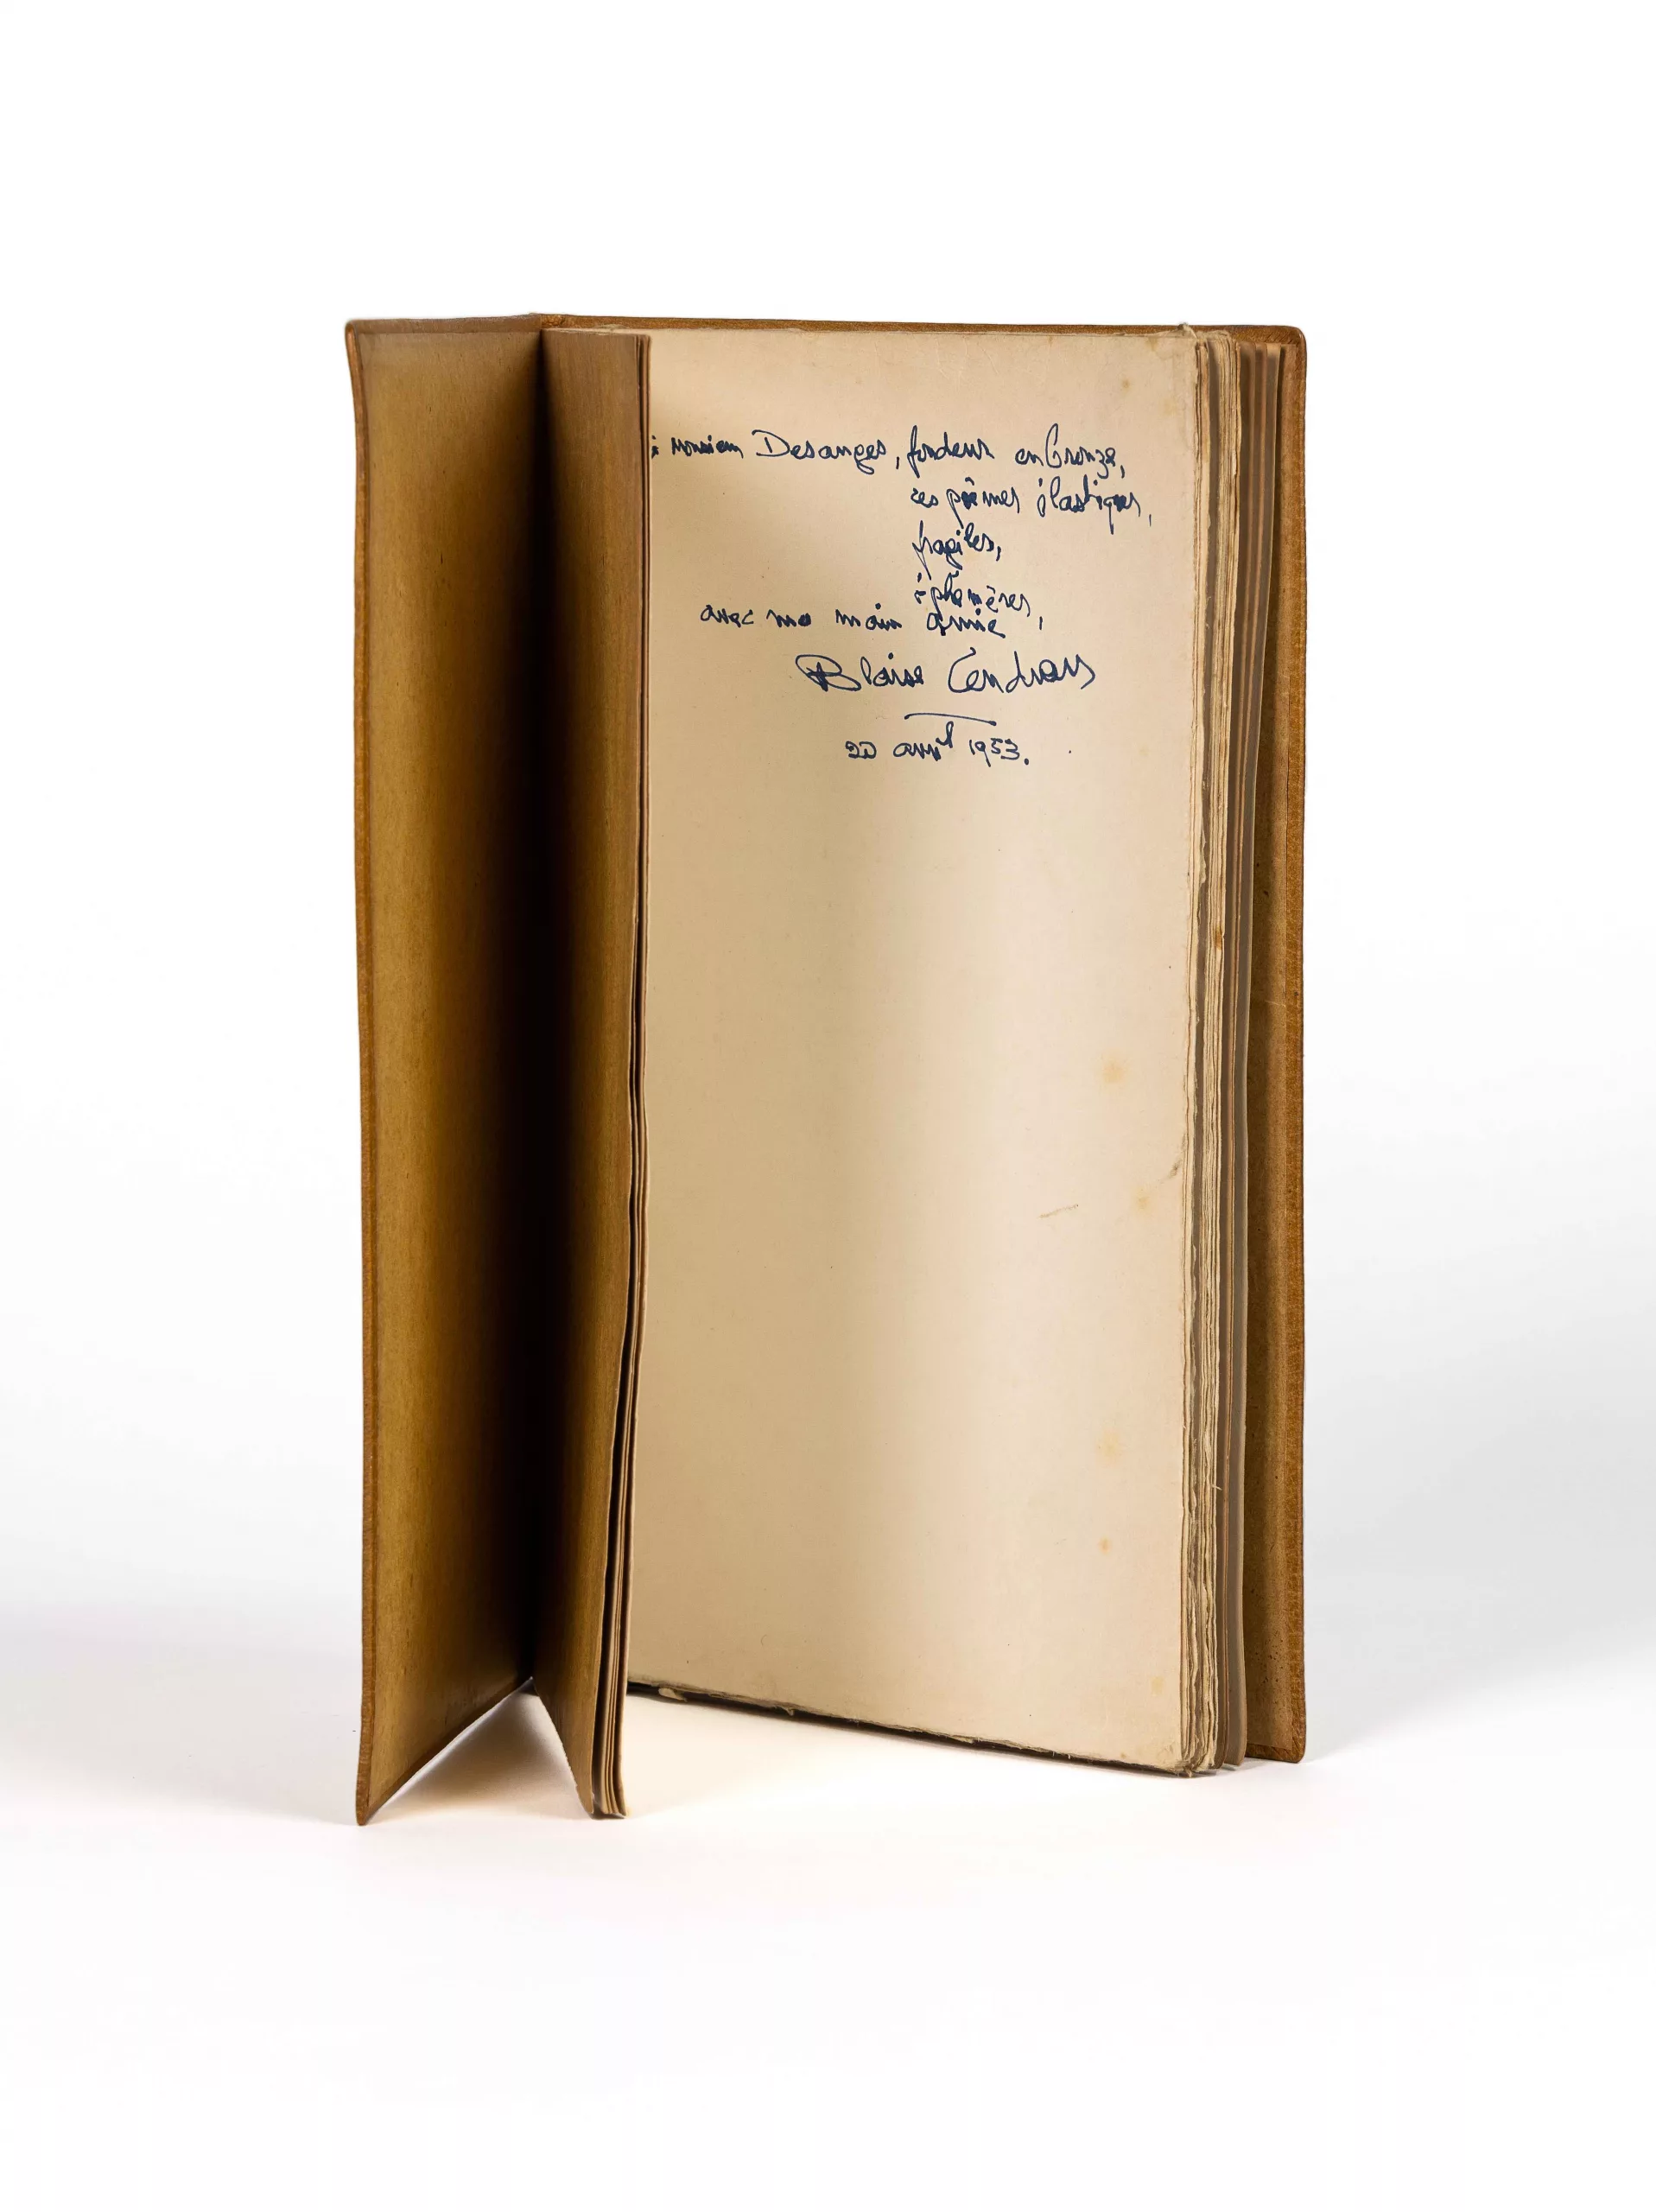 à Monsieur Desanges, fondeur en bronze,
ces poèmes élastiques,
fragiles,
éphémères,
avec ma main amie,
Blaise Cendrars
20 avril 1953.